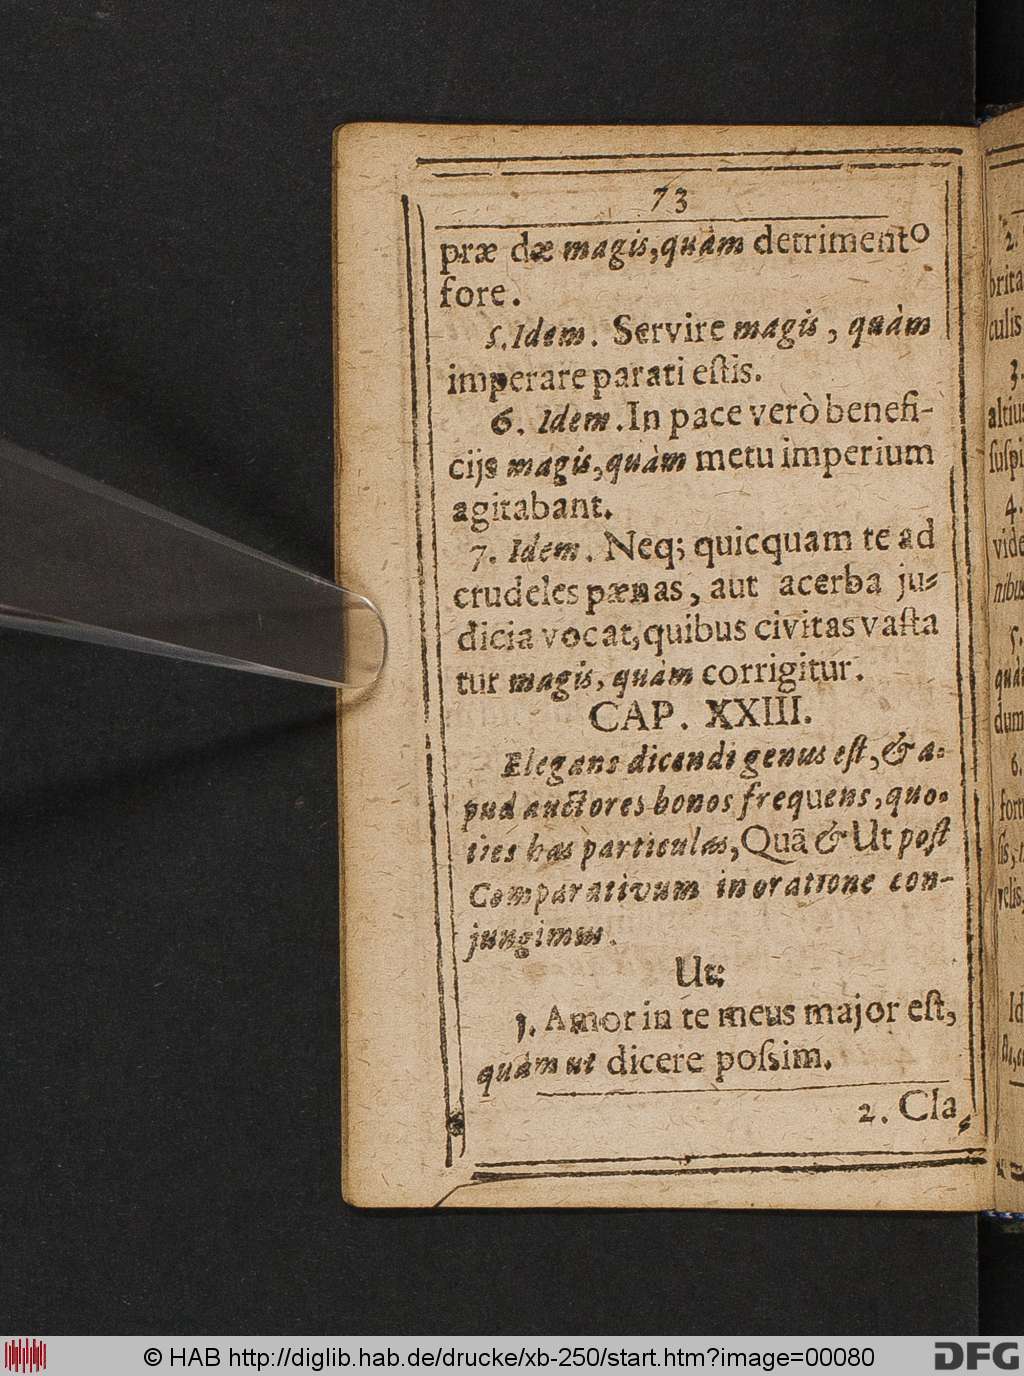 73
præ dæ magis, quàm detrimento
fore.
5. Idem. Servire magis, quàm
imperare parati eſtis.
6. Idem. In pace verò benefi-
cijs magis, quàm metu imperium
agitabant.
7. Idem. Neq; quicquam te ad
crudeles pænas, aut acerba ju-
dicia vocat, quibus civitas vaſta
tur magis, quàm corrigitur.
CAP. XXIII.
Elegans dicendi genus eſt, & a-
pud auctores bonos frequens, quo-
ties has particulas, Quā & Ut poſt
Comparativum in oratione con-
jungimus.
Ut:
1. Amor in te meus major eſt,
quàm ut dicere poſsim.
2. Cla,
2.
brita
culis
3.
altiu
ſuſpi
4.
vide
nibus
5.
quàm
dum
6.
fortu
velis
Id
© HAB http://diglib.hab.de/drucke/xb-250/start.htm?image=00080
DFG